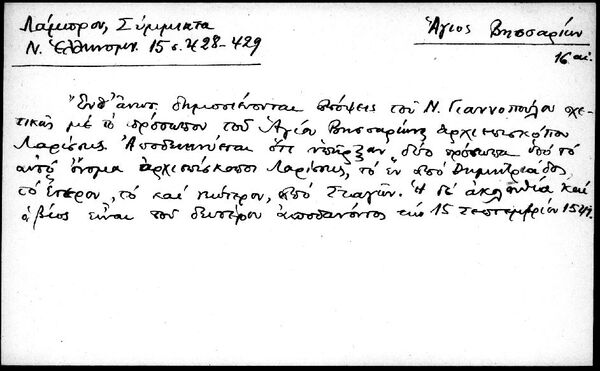 Λάμπρου, Σύμμικτα
Ν. Ἑλληνομν. 15 σ. 428-429
Ἅγιος Βησσαρίων
16 αἰ.
Ἐνθ' ἄνωτ. δημοσιεύονται ἀπόψεις τοῦ Ν. Γιαννοπούλου σχε-
τικαὶ μὲ τὸ πρόσωπον τοῦ Ἁγίου Βησσαρίωνος ἀρχιεπισκόπου
Λαρίσης. Ἀποδεικνύεται ὅτι ὑπῆρξαν δύο πρόσωπα ὑπὸ τὸ
αὐτὸ ὄνομα ἀρχιεπίσκοποι Λαρίσης, τὸ ἓν ἀπὸ Δημητριάδος,
τὸ ἕτερον, τὸ καὶ νεώτερον, ἀπὸ Σταγῶν. Ἡ δὲ ἀκολουθία καὶ
ὁ βίος εἶναι τοῦ δευτέρου ἀποθανόντος εἰς 15 Σεπτεμβρίου